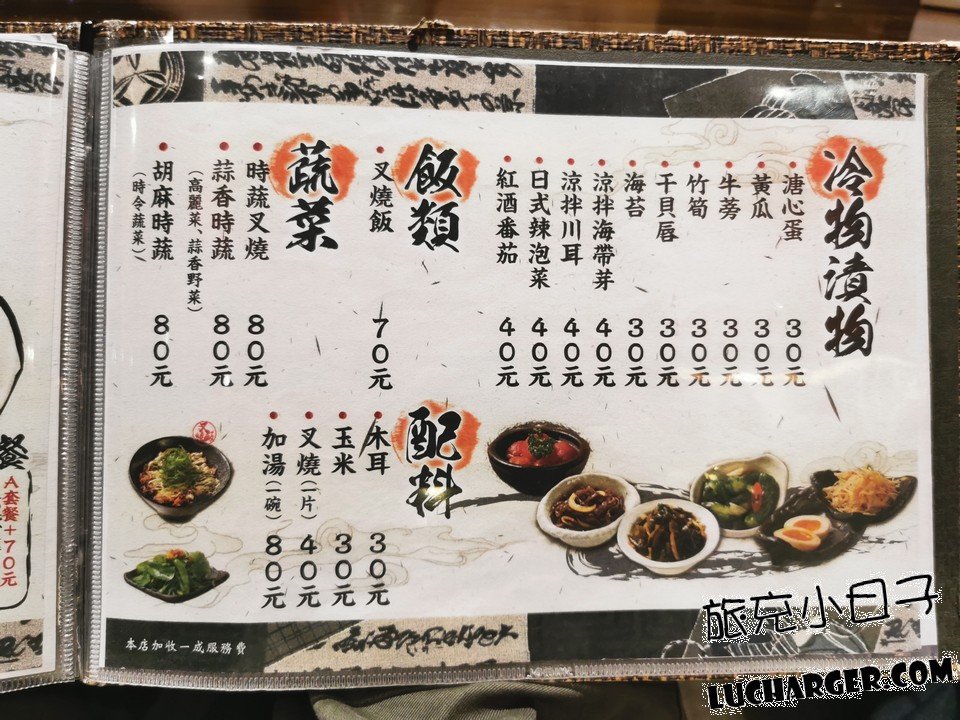 冷物漬物
溏心蛋 30元
黃瓜 30元
牛蒡 30元
竹筍 30元
干貝唇 30元
海苔 30元
涼拌海帶芽 40元
涼拌川耳 40元
日式辣泡菜 40元
紅酒番茄 40元
飯類
叉燒飯 70元
蔬菜
時蔬叉燒 80元
蒜香時蔬 80元
(高麗菜、蒜香野菜)
胡麻時蔬 80元
(時令蔬菜)
配料
木耳 30元
玉米 30元
叉燒(一片) 40元
加湯(一碗) 80元
本店加收一成服務費
餐
A套餐+70元
旅充小日子
LUCHARGER.COM